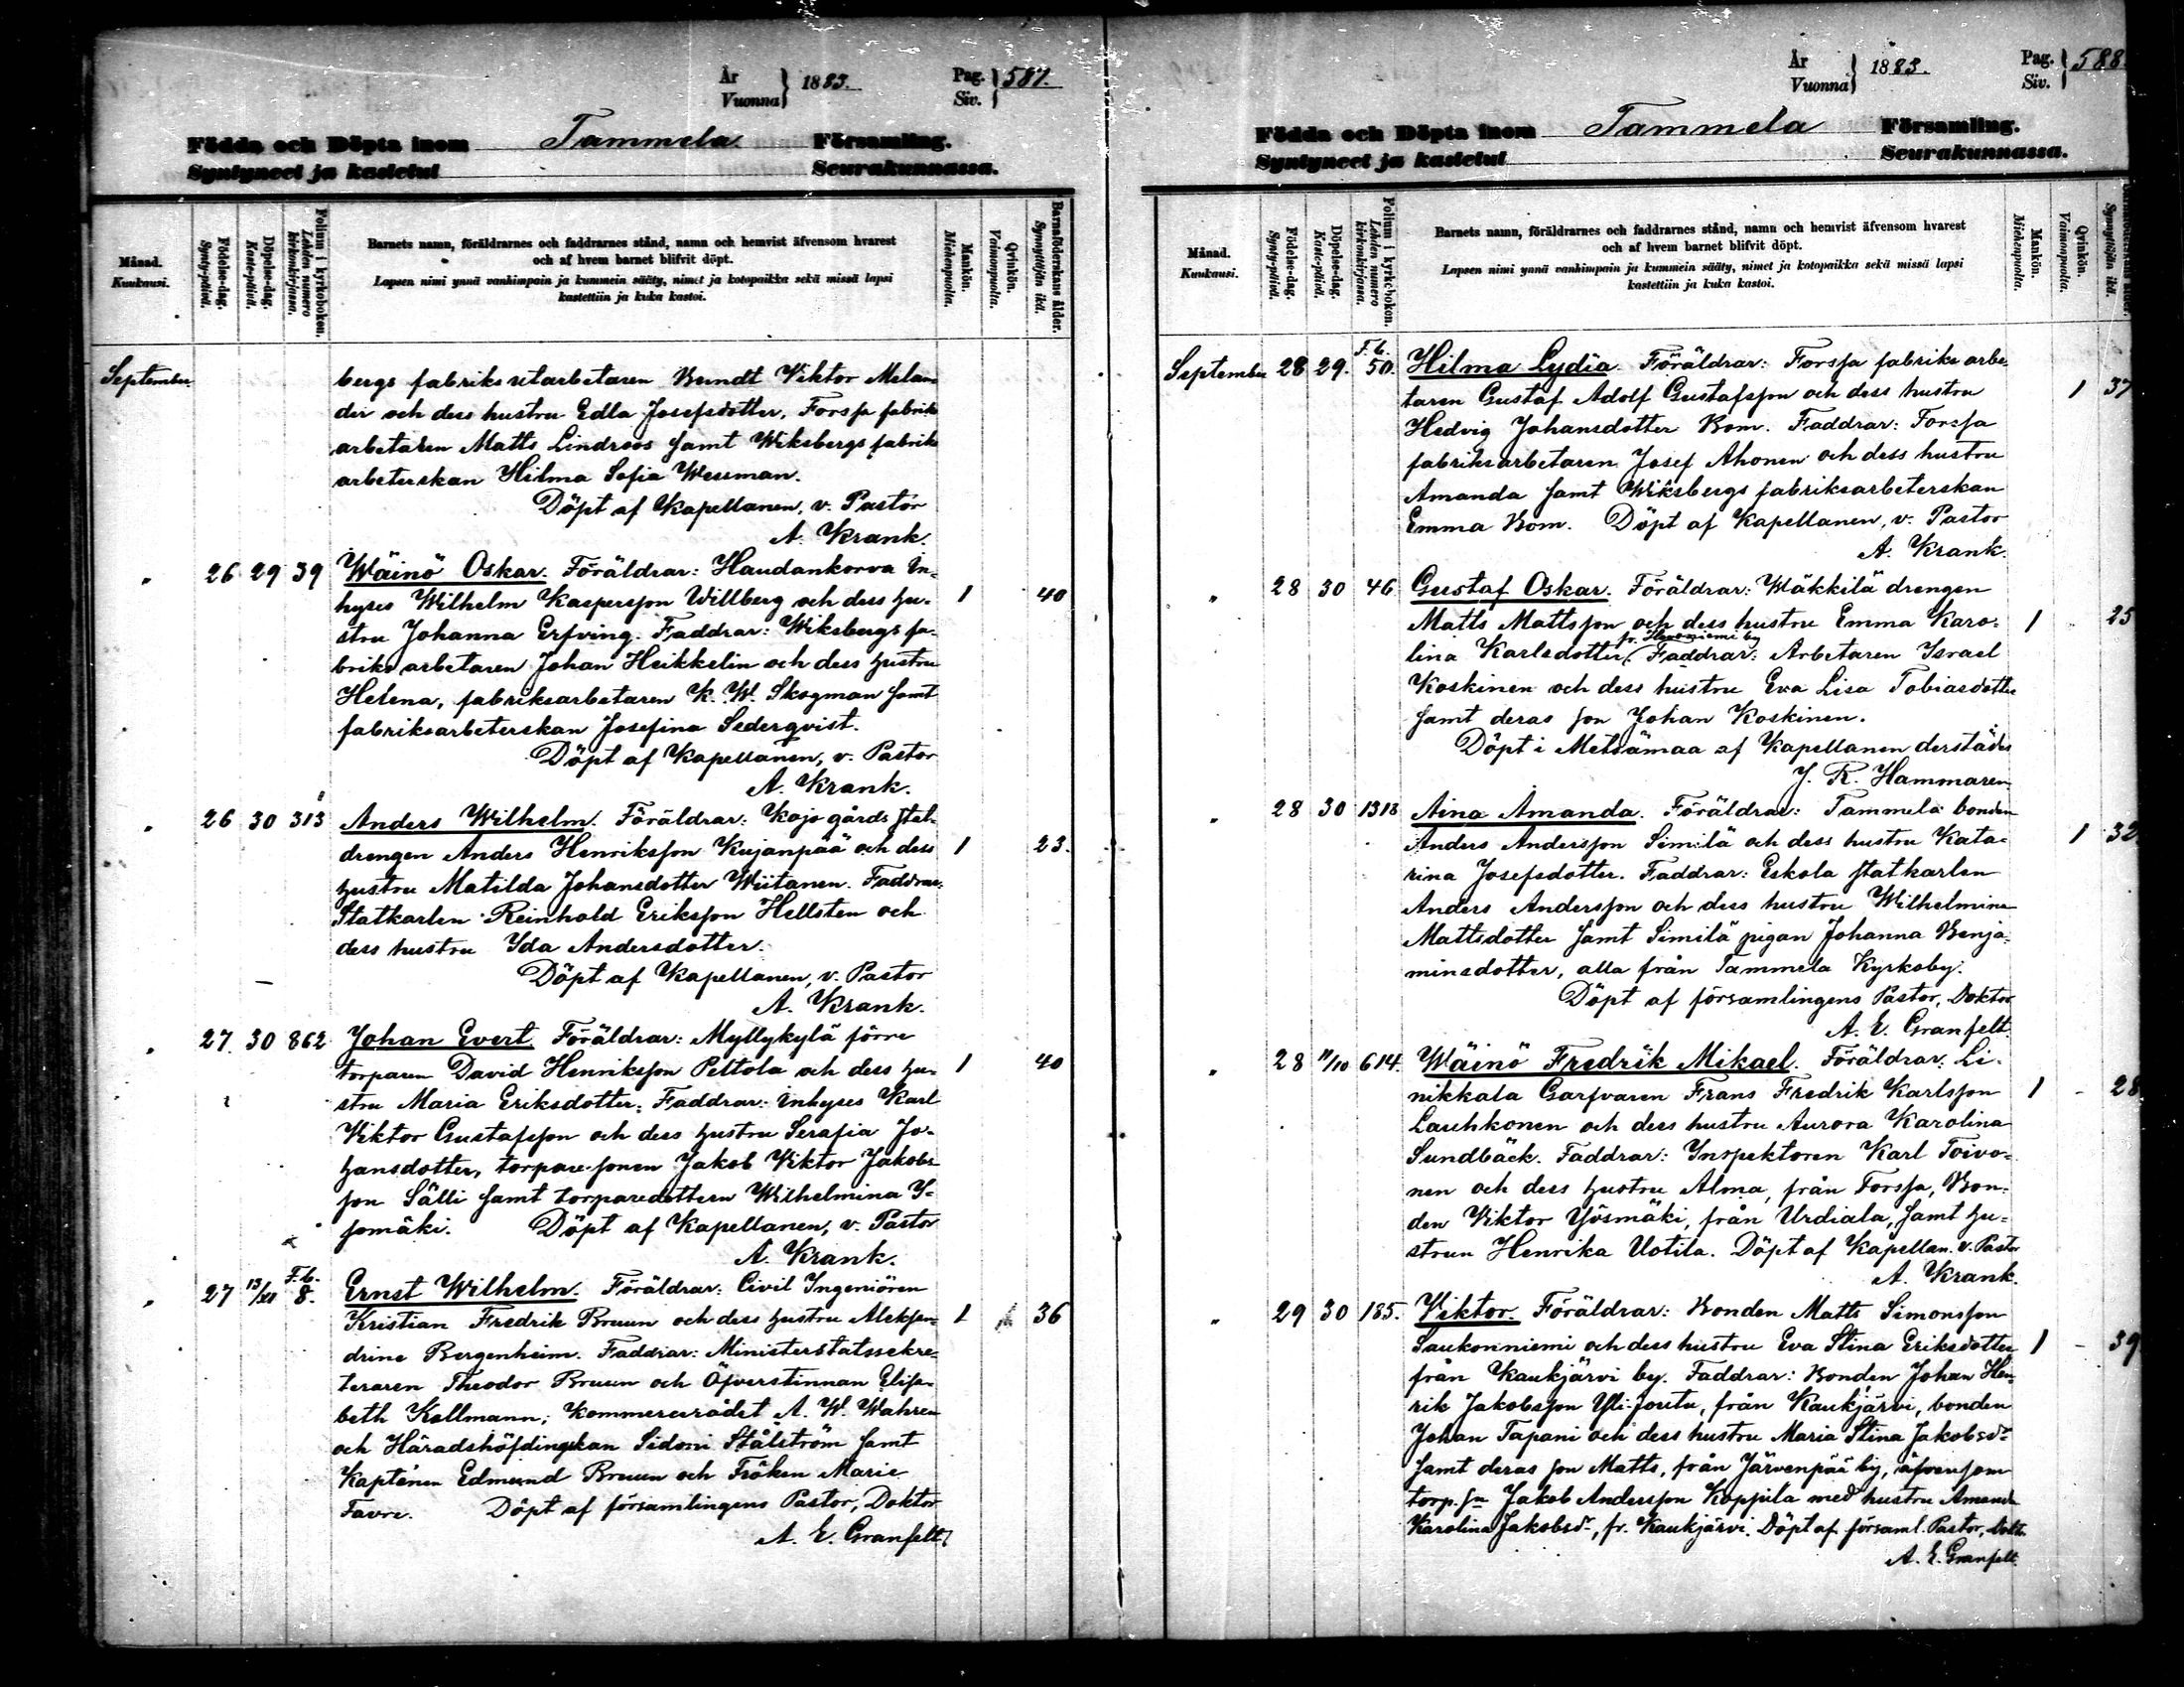 År
Vuonna } 1883. Pag.
Siv. } 587.
Födda och Döpta inom Tammela Församling.
Syntyneet ja kastetut Seurakunnassa.
Månad.
Kuukausi.
Födelse-dag.
Synty-päivä.
Döpelse-dag.
Kaste-päivä.
Folium i kyrkoboken.
Lehden numero kirkonkirjassa.
Barnets namn, föräldrarnes och faddrarnes stånd, namn och hemvist äfvensom hvarest
och af hvem barnet blifvit döpt.
Lapsen nimi ynnä vanhimpain ja kummein sääty, nimet ja kotopaikka sekä missä lapsi
kastettiin ja kuka kastoi.
Mankön.
Miehenpuolta.
Qvinkön.
Vaimonpuolta.
Barnaföderskans ålder.
Synnyttäjän ikä.
September bergs fabriks utarbetaren Berndt Viktor Melan
der och dess hustru Edla Josefsdotter, Forssa fabriks
arbetaren Matts Lindroos samt Wiksbergs fabriks
arbeterskan Hilma Sofia Wessman.
Döpt af Kapellanen, v. Pastor
A. Krank.
" 26 29 39 Wäinö Oskar. Föräldrar: Haudankorva In-
hyses Wilhelm Kaspersson Willberg och dess hu- 1 40
stru Johanna Erfving. Faddrar: Wiksbergs fa-
briks arbetaren Johan Heikkelin och dess hustru
Helena, fabriksarbetaren K. W. Skogman samt
fabriksarbeterskan Josefina Sederqvist.
Döpt af Kapellanen, v. Pastor
A. Krank.
" 26 30 313 Anders Wilhelm. Föräldrar: Kojo gårds stal-
drengen Anders Henriksson Kujanpää och dess 1 23.
hustru Matilda Johansdotter Wiitanen. Faddrar:
Statkarlen Reinhold Eriksson Hellsten och
dess hustru Ida Andersdotter.
Döpt af Kapellanen, v. Pastor
A. Krank.
" 27. 30 862 Johan Evert. Föräldrar: Myllykylä förre
torparen David Henriksson Peltola och dess hu- 1 40
stru Maria Eriksdotter. Faddrar: Inhyses Karl
Viktor Gustafsson och dess hustru Serafia Jo-
hansdotter, torpare sonen Jakob Viktor Jakobs-
son Sälli samt torparedottern Wilhelmina I-
somäki. Döpt af Kapellanen, v. Pastor
A. Krank.
" 27 13/XI F.b. 8. Ernst Wilhelm. Föräldrar: Civil Ingeniören
Kristian Fredrik Bruun och dess hustru Aleksan- 1 36
drine Bergenheim. Faddrar: Ministerstatssekre-
teraren Theodor Bruun och Öfverstinnan Elisa-
beth Kollmann; Kommerserådet A. W. Wahren
och Häradshöfdingskan Sidoni Stålström samt
Kaptenen Edmund Bruun och Fröken Marie
Favre. Döpt af församlingens Pastor, Doktor
A. E. Granfelt.
År
Vuonna } 1883. Pag.
Siv. } 588.
Födda och Döpta inom Tammela Församling.
Syntyneet ja kastetut Seurakunnassa.
Månad.
Kuukausi.
Födelse-dag.
Synty-päivä.
Döpelse-dag.
Kaste-päivä.
Folium i kyrkoboken.
Lehden numero kirkonkirjassa.
Barnets namn, föräldrarnes och faddrarnes stånd, namn och hemvist äfvensom hvarest
och af hvem barnet blifvit döpt.
Lapsen nimi ynnä vanhimpain ja kummein sääty, nimet ja kotopaikka sekä missä lapsi
kastettiin ja kuka kastoi.
Mankön.
Miehenpuolta.
Qvinkön.
Vaimonpuolta.
Synnyttäjän ikä.
September 28 29. F.b. 50. Hilma Lydia. Föräldrar: Forssa fabriks arbe-
taren Gustaf Adolf Gustafsson och dess hustru 1 37
Hedvig Johansdotter Bom. Faddrar: Forssa
fabriksarbetaren Josef Ahonen och dess hustru
Amanda samt Wiksbergs fabriksarbeterskan
Emma Bom. Döpt af Kapellanen, v. Pastor
A. Krank.
" 28 30 46 Gustaf Oskar. Föräldrar: Wäkkilä drengen
Matts Mattsson och dess hustru Emma Karo- 1 25
lina Karlsdotter. Faddrar: Arbetaren Israel
Koskinen och dess hustru Eva Lisa Tobiasdotter
samt deras son Johan Koskinen.
Döpt i Metsämaa af Kapellanen derstädes
J. R. Hammaren
" 28 30 1313 Aina Amanda. Föräldrar: Tammela bonden
Anders Andersson Similä och dess hustru Kata- 1 32
rina Josefsdotter. Faddrar: Eskola statkarlen
Anders Andersson och dess hustru Wilhelmina
Mattsdotter samt Similä pigan Johanna Benja-
minsdotter, alla från Tammela Kyrkoby.
Döpt af församlingens Pastor, Doktor
A. E. Granfelt.
" 28 11/10 614. Wäinö Fredrik Mikael. Föräldrar: Li-
nikkala Garfvaren Frans Fredrik Karlsson 1 - 28
Lauhkonen och dess hustru Aurora Karolina
Sundbäck. Faddrar: Inspektoren Karl Toivo-
nen och dess hustru Alma, från Forssa, Bon-
den Viktor Yösmäki, från Urdiala, samt hu-
strun Henrika Uotila. Döpt af Kapellan. v. Pastor
A. Krank.
" 29 30 185. Viktor. Föräldrar: Bonden Matts Simonsson
Saukonniemi och dess hustru Eva Stina Eriksdotter 1 - 39
från Kaukjärvi by. Faddrar: Bonden Johan Hen-
rik Jakobsson Yli-Joutu, från Kaukjärvi, bonden
Johan Tapani och dess hustru Maria Stina Jakobsdr
samt deras son Matts, från Järvenpää by, äfvensom
torp. sn Jakob Andersson Kopjula med hustru Amanda
Karolina Jakobsdr, fr. Kaukjärvi. Döpt af församl. Pastor, Dokt.
A. E. Granfelt.